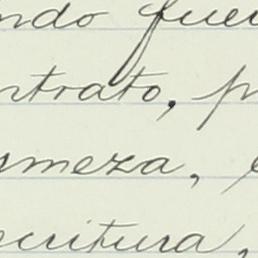 ndo fue
ntrato, p
smeza,
scritura,